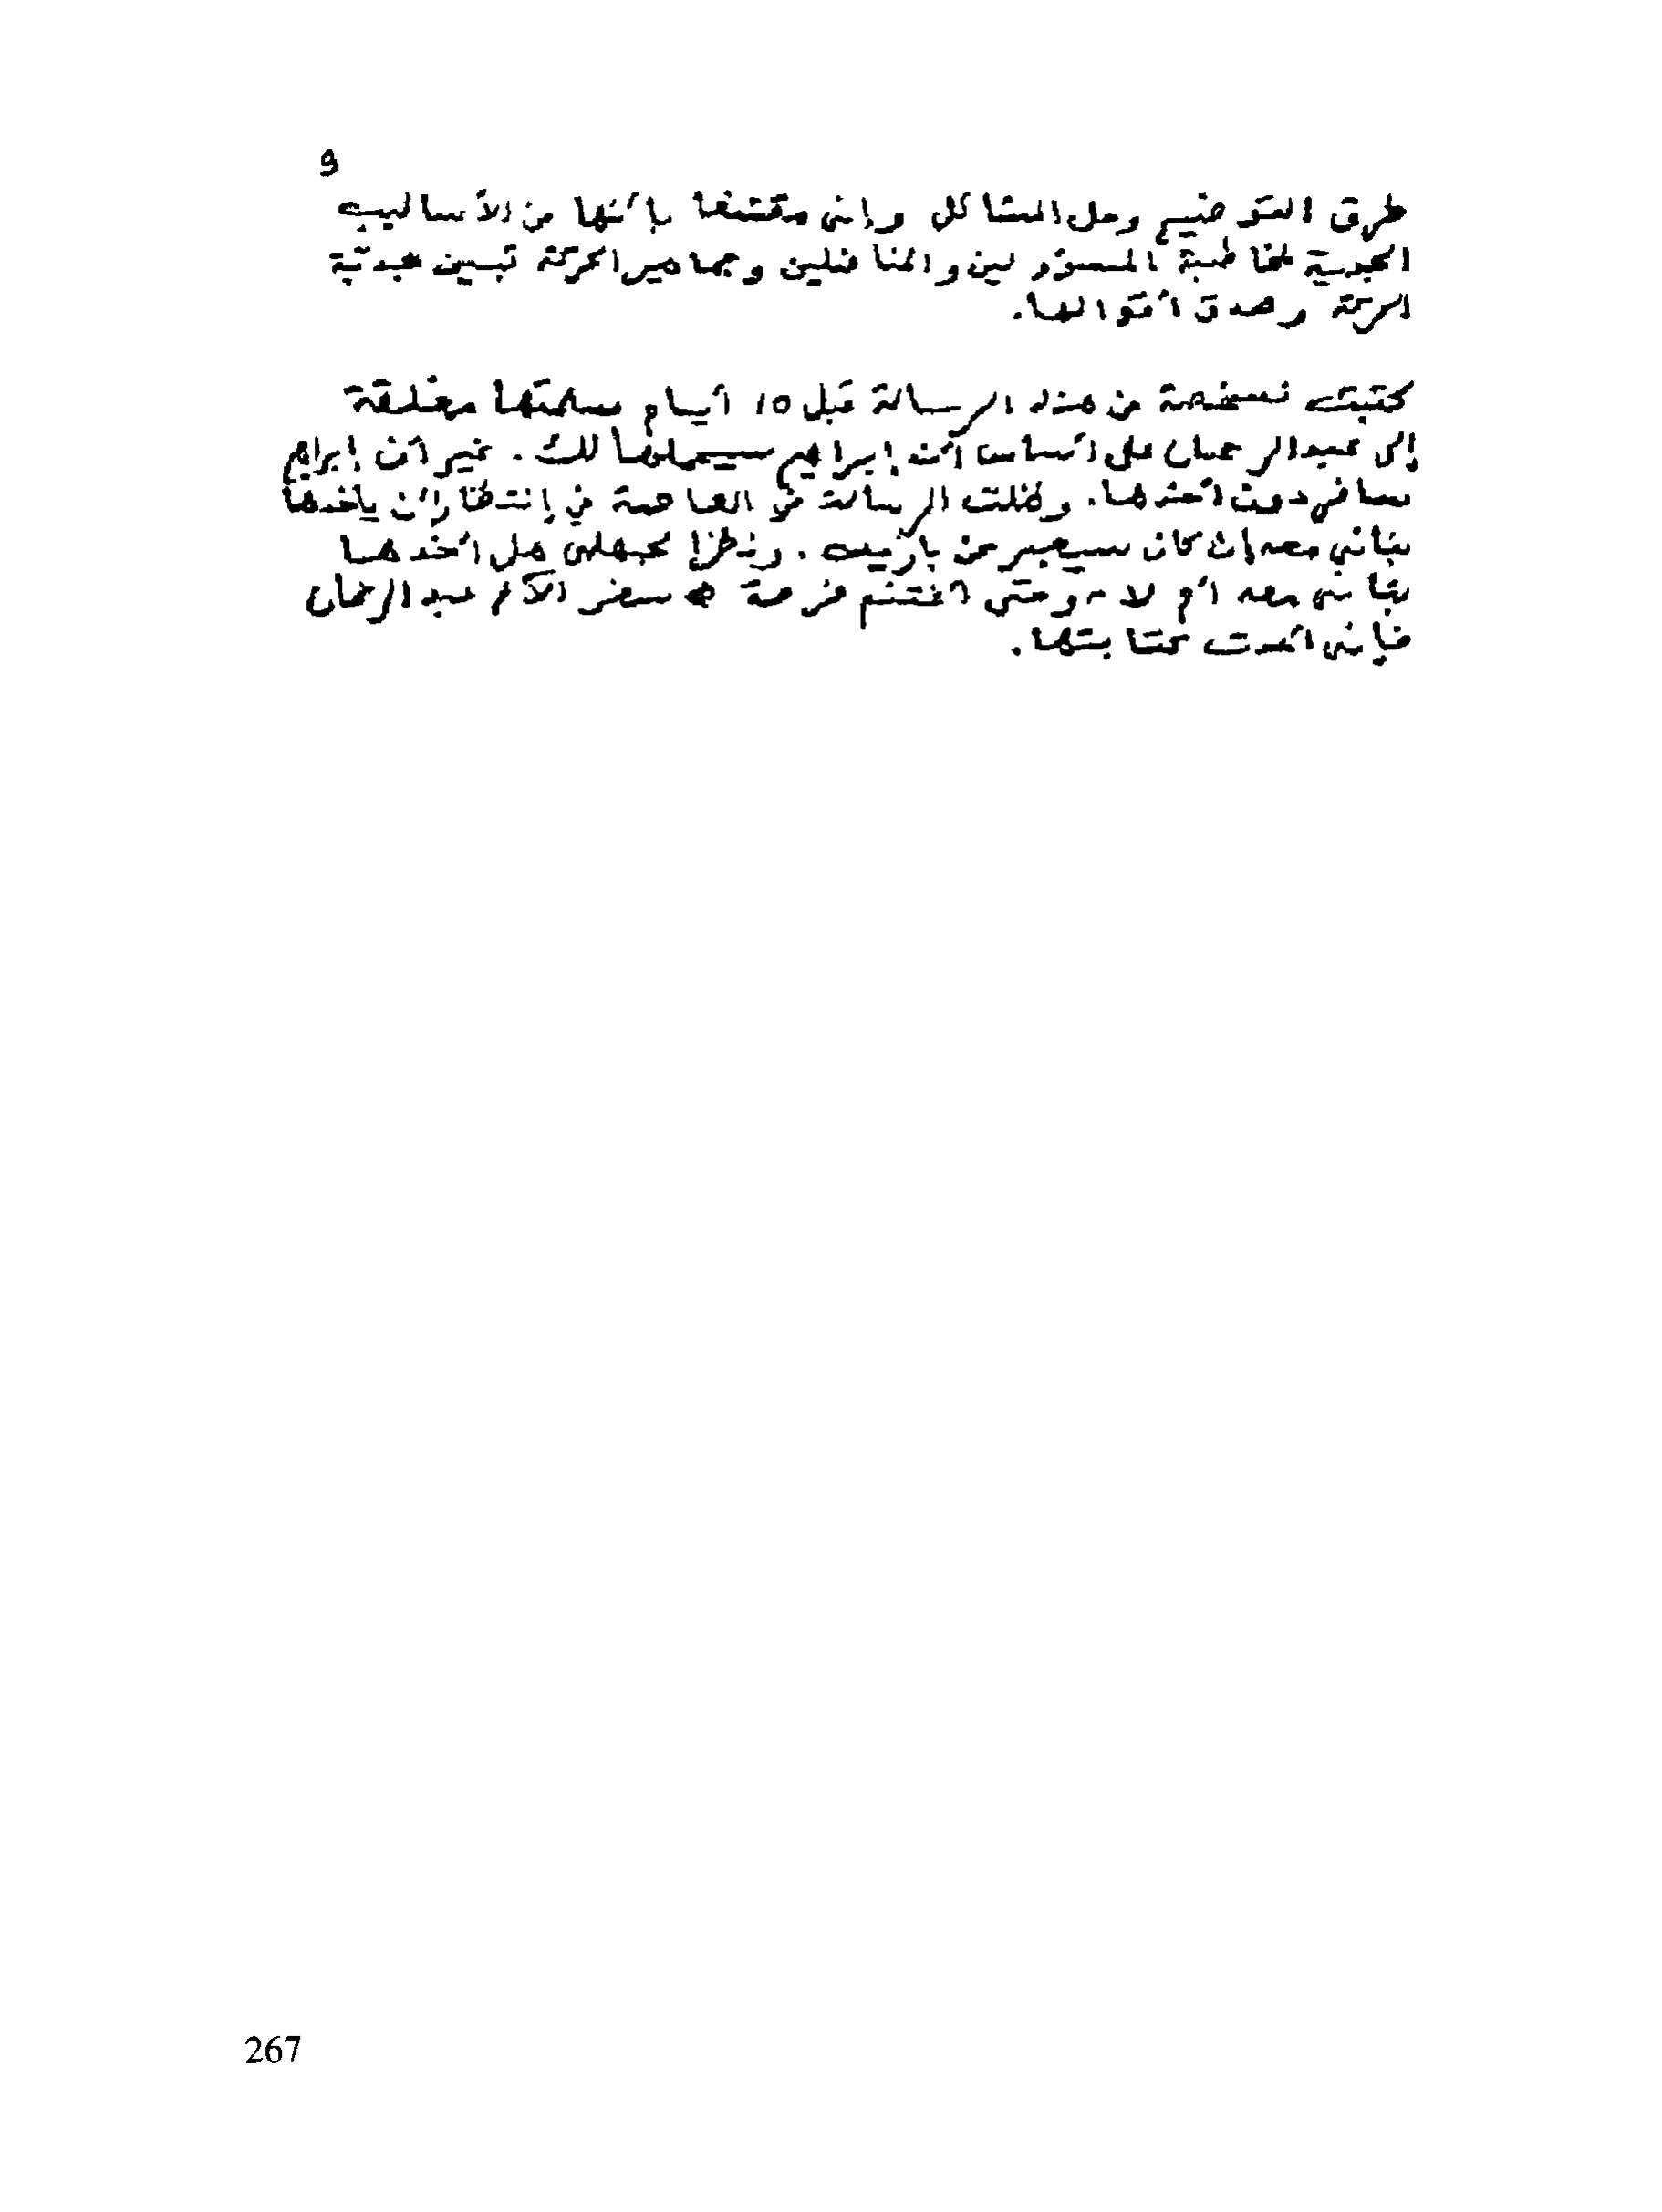 و
طرق التوضيح وحل المشاكل وإني مقتنعا بأنها من الأساليب
المجدية لمخاطبة المسؤولين والمناضلين وجماهير الحركة تبين جدية
الحركة وصدق أقوالها.
كتبت نسخة من هذه الرسالة قبل 15 أيام سلمتها مغلقة
إلى عبد الرحمان على أساس أن إبراهيم سيحملها لك. غير أن إبراهيم
سافر دون أخذها. وظلت الرسالة في العاصمة في إنتظار أن يأخذها
بناني معه إن كان سيعبر عن باريس. ونظرا لجهلي هل أخذها
بناني معه أم لا، وحتى أغتنم فرصة سفر الأخ عبد الرحمان
فإني أعدت كتابتها.
267